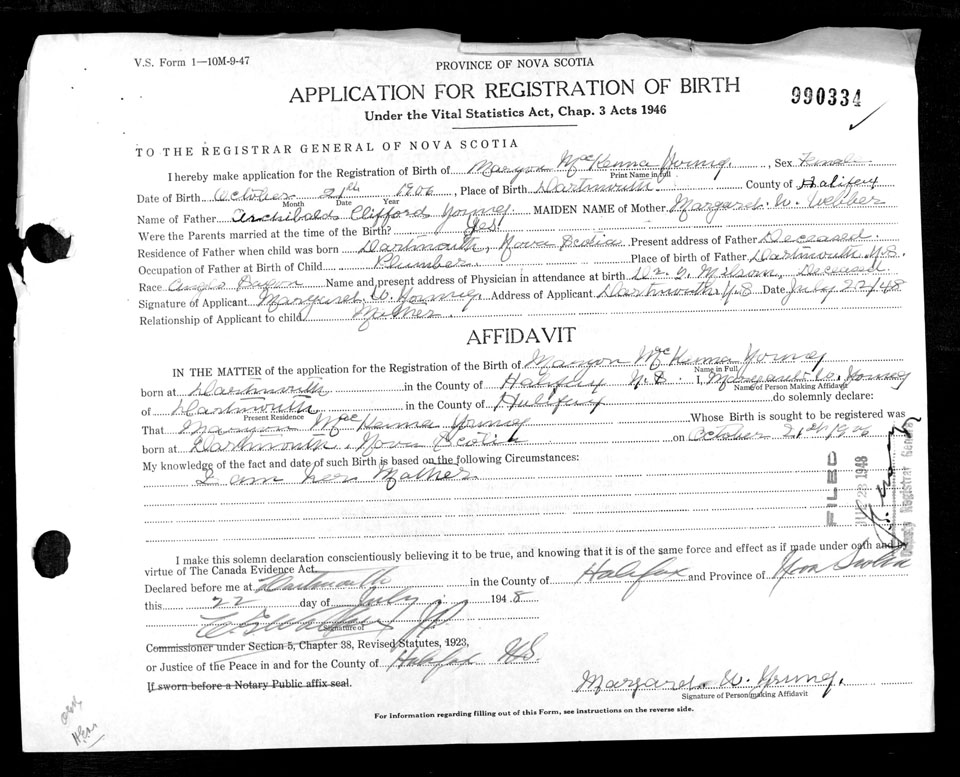 V.S. Form 1—10M-9-47
PROVINCE OF NOVA SCOTIA
APPLICATION FOR REGISTRATION OF BIRTH
990334
Under the Vital Statistics Act, Chap. 3 Acts 1946
TO THE REGISTRAR GENERAL OF NOVA SCOTIA
I hereby make application for the Registration of Birth of Maryon McKenna Young, Sex Female
Print Name in full
Date of Birth October 21st 1906, Place of Birth Dartmouth. County of Halifax
Month Date Year
Name of Father Archibald Clifford Young MAIDEN NAME of Mother Margaret W. Webber
Were the Parents married at the time of the Birth? Yes
Residence of Father when child was born Dartmouth, Nova Scotia Present address of Father Deceased.
Occupation of Father at Birth of Child Plumber. Place of birth of Father Dartmouth N.S.
Race Anglo Saxon Name and present address of Physician in attendance at birth Dr. Milsom, Deceased
Signature of Applicant Margaret W. Young Address of Applicant Dartmouth N.S Date July 22/48
Relationship of Applicant to child Mother.
AFFIDAVIT
IN THE MATTER of the application for the Registration of the Birth of Maryon McKenna Young
Name in Full
born at Dartmouth in the County of Halifax N.S. I, Margaret W. Young
Name of Person Making Affidavit
of Dartmouth in the County of Halifax do solemnly declare:
Present Residence
That Maryon MacKenna Young Whose Birth is sought to be registered was
born at Dartmouth, Nova Scotia on October 21st 1906
My knowledge of the fact and date of such Birth is based on the following Circumstances:
I am her Mother
FILED
JUL 23 1948
Deputy Registrar General
I make this solemn declaration conscientiously believing it to be true, and knowing that it is of the same force and effect as if made under oath and by
virtue of The Canada Evidence Act.
Declared before me at Dartmouth in the County of Halifax and Province of Nova Scotia
this 22 day of July 1948
JP
Signature of
Commissioner under Section 5, Chapter 38, Revised Statutes, 1923,
or Justice of the Peace in and for the County of Halifax NS.
If sworn before a Notary Public affix seal.
Margaret W. Young.
Signature of Person making Affidavit
For information regarding filling out of this Form, see instructions on the reverse side.